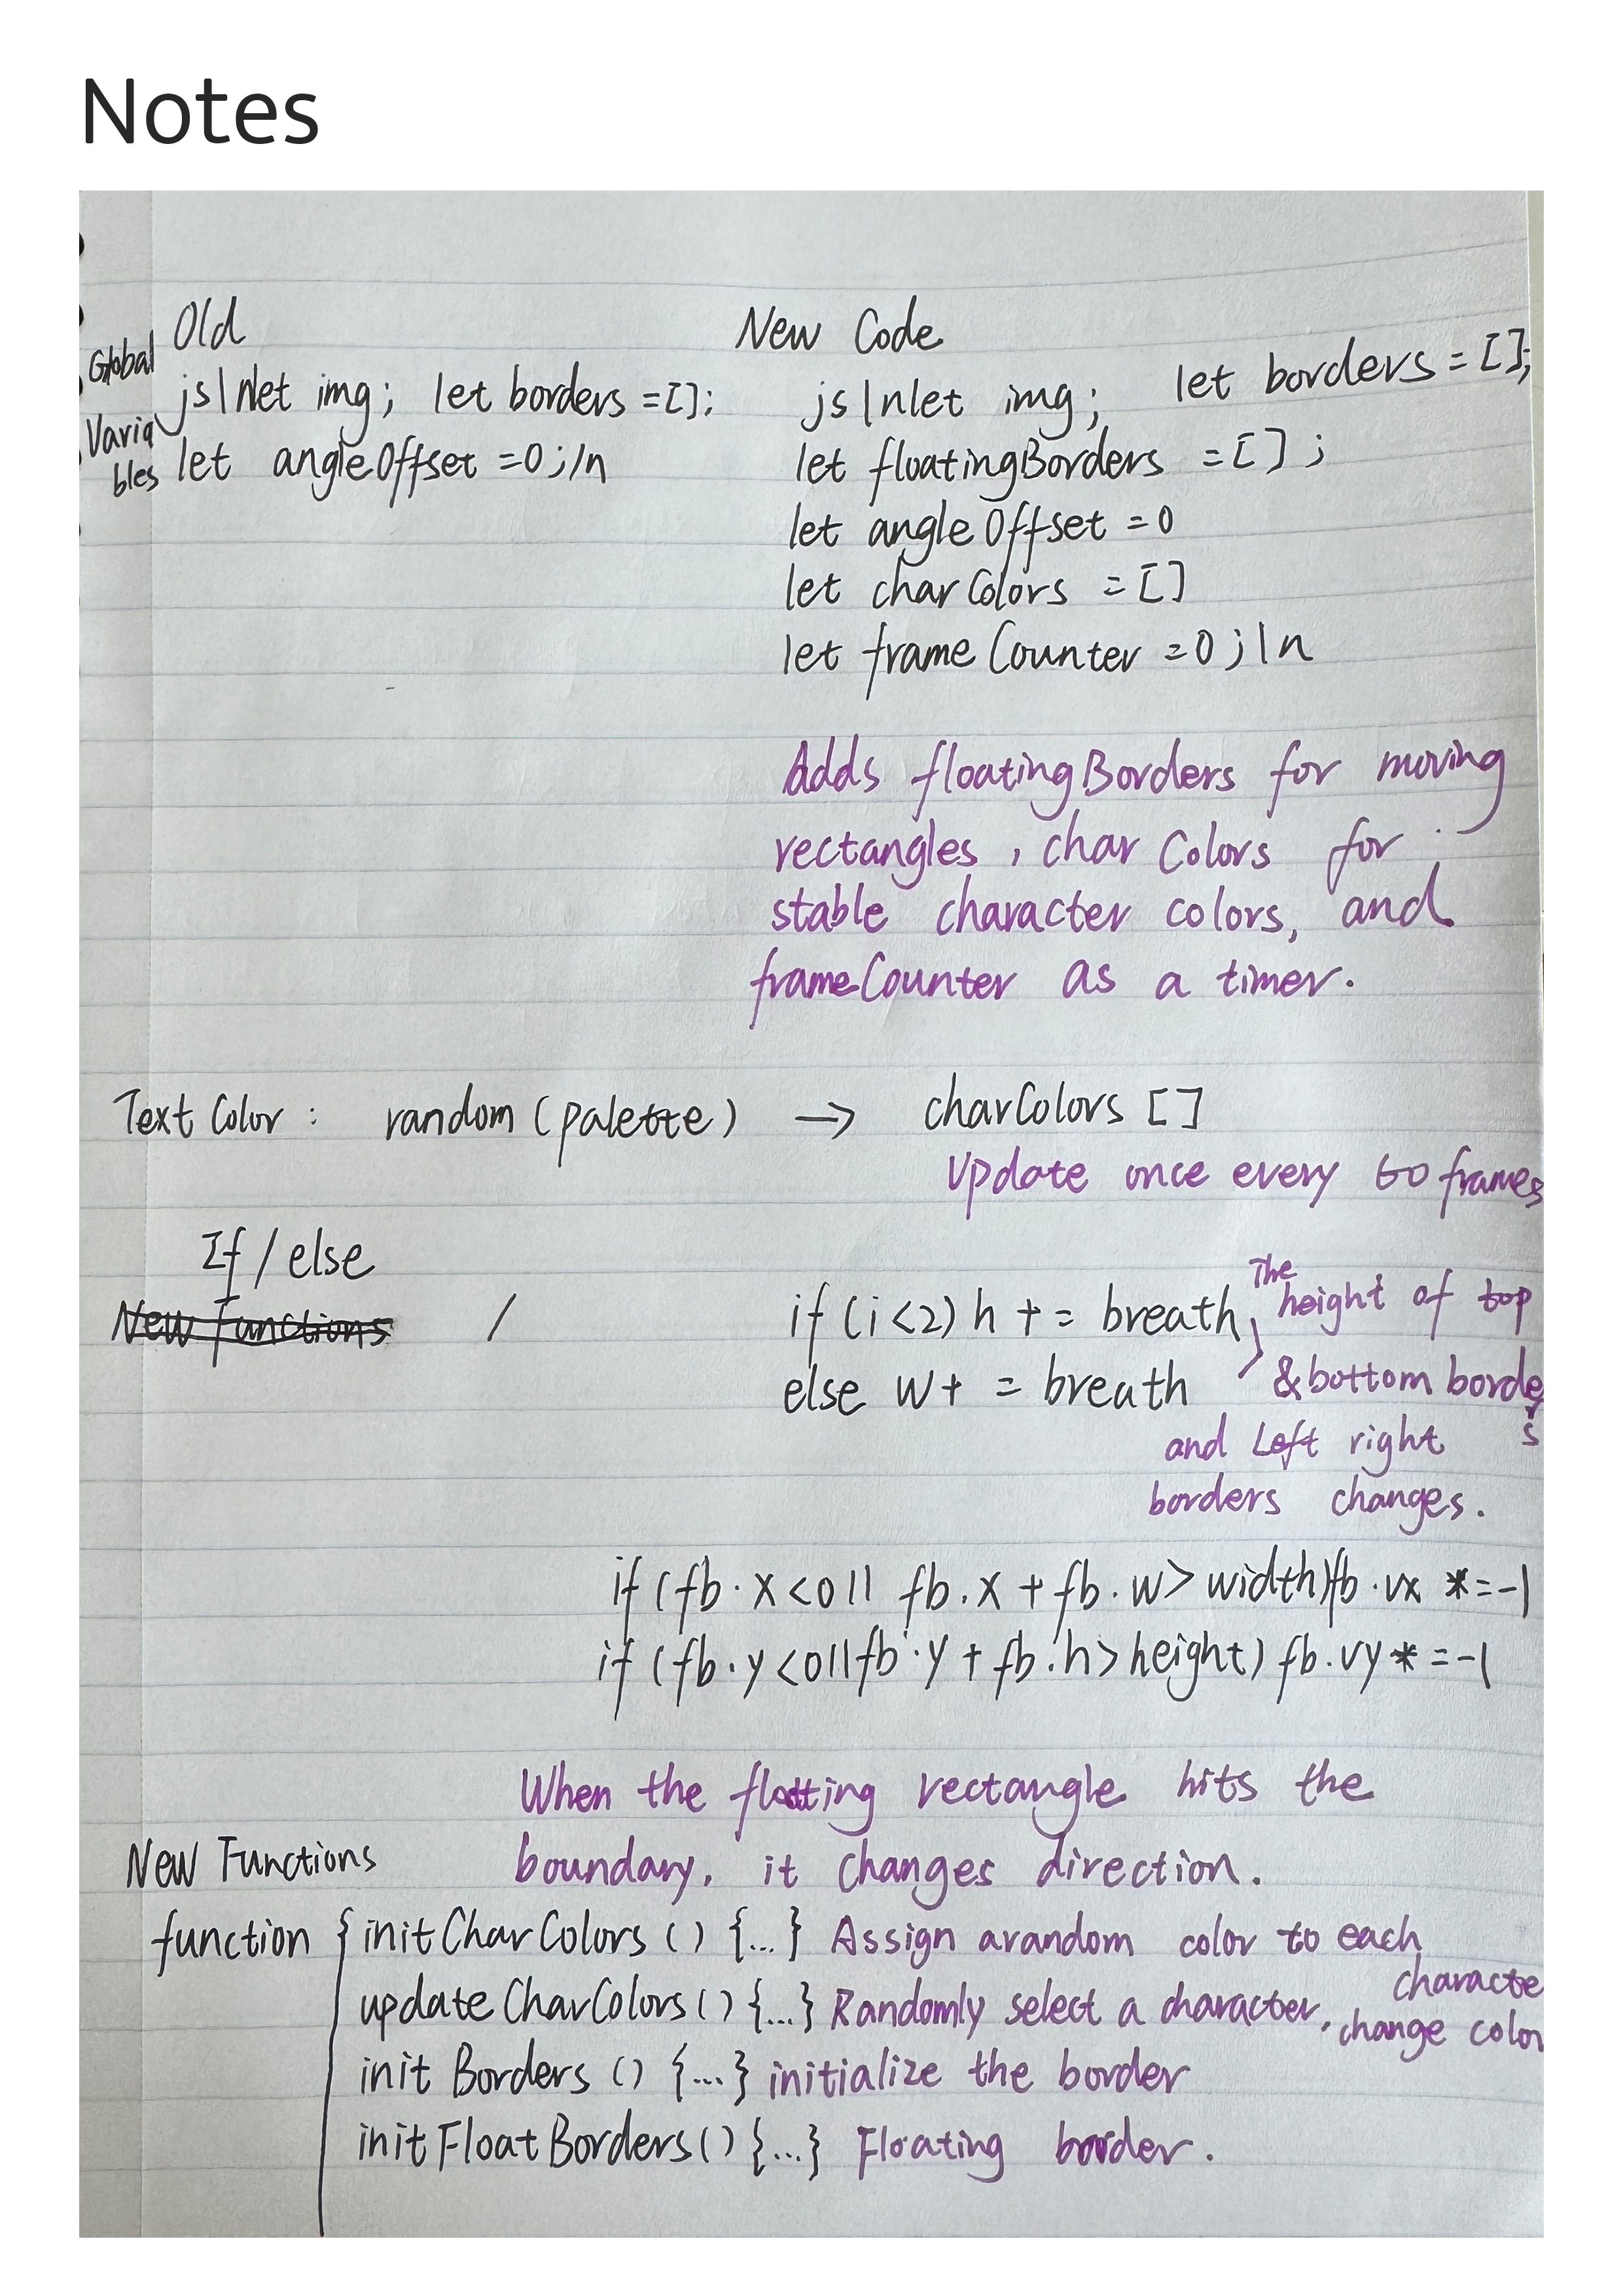 Notes
Old New Code
Global
js\nlet img; let borders =[]; js\nlet img; let borders =[];
Varia
bles let angleOffset =0;\n let floatingBorders =[];
let angleOffset =0
let charColors =[]
let frameCounter =0;\n
Adds floatingBorders for moving
rectangles, charColors for
stable character colors, and
frameCounter as a timer.
Text Color: random (palette) → charColors []
Update once every 60 frames
If / else
New functions / if (i<2) h += breath, The height of top
else w+ = breath & bottom borde
s
and Left right
borders changes.
if (fb.x<0|| fb.x + fb.w> width)fb.vx *=-1
if (fb.y<0||fb.y + fb.h> height) fb.vy* =-1
When the floating rectangle hits the
New Functions boundary, it changes direction.
function { initCharColors () {...} Assign arandom color to each
characte
updateCharColors () {...} Randomly select a character, change color
init Borders () {...} initialize the border
initFloatBorders () {...} Floating border.